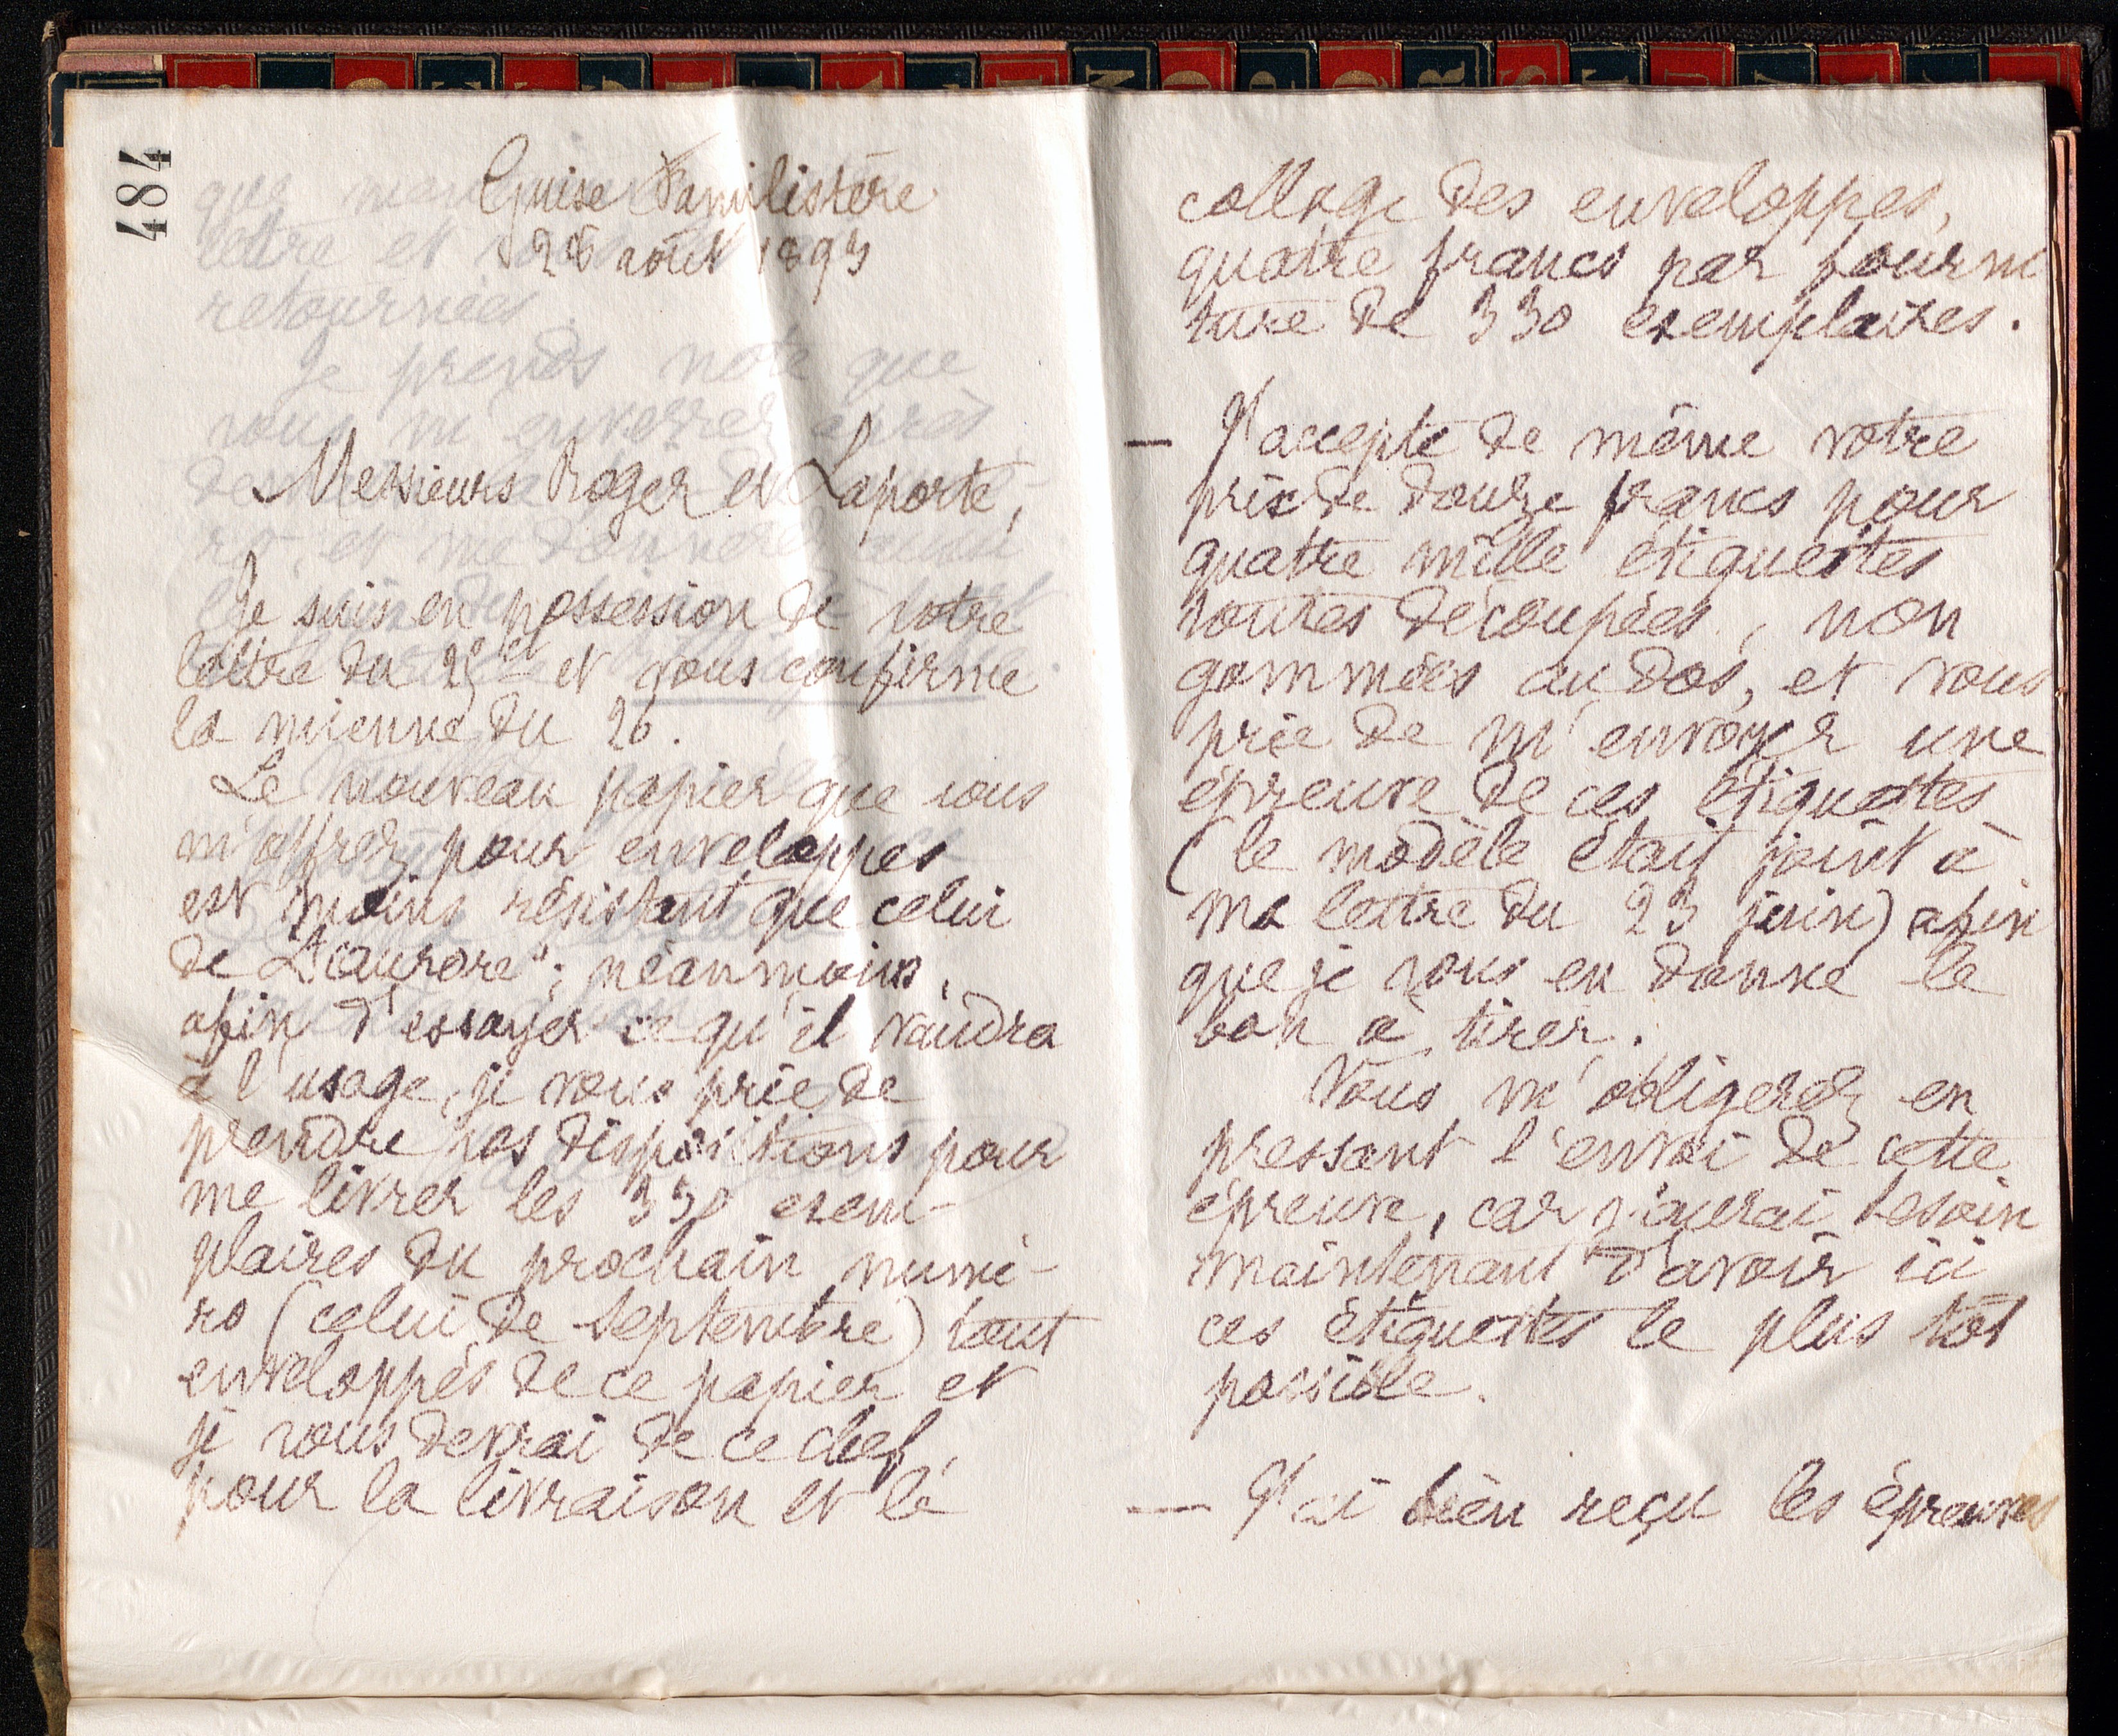 484
Guise Familistère
28 août 1893
Messieurs Roger et Laporte,
Je suis en possession de votre
lettre du 25 ct et vous confirme
la mienne du 26.
Le nouveau papier que vous
m'offrez pour enveloppes
est moins résistant que celui
de "L'aurore"; néanmoins,
afin d'essayer ce qu'il vaudra
à l'usage, je vous prie de
prendre vos dispositions pour
me livrer les 330 exem-
plaires du prochain numé-
ro (celui de septembre) tout
enveloppés de ce papier et
je vous devrai de ce chef,
pour la livraison et le
collage des enveloppes,
quatre francs par fourni
ture de 330 exemplaires.
— J'accepte de même votre
prix de douze francs pour
quatre mille étiquettes
toutes découpées, non
gommées au dos, et vous
prie de m'envoyer une
épreuve de ces étiquettes
(le modèle était joint à
ma lettre du 23 juin) afin
que je vous en donne le
bon à tirer.
Vous m'obligerez en
pressant l'envoi de cette
épreuve, car j'aurai besoin
maintenant d'avoir ici
ces étiquettes le plus tôt
possible.
— J'ai bien reçu les épreuves
N O P Q R S T U V